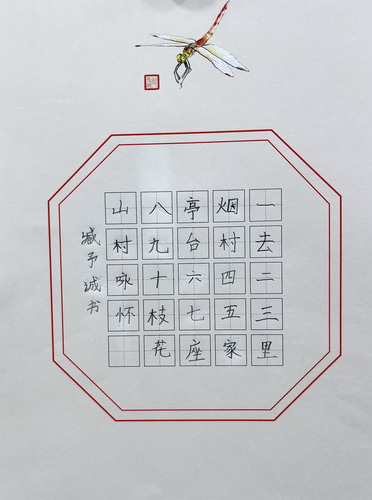 一去二三里
烟村四五家
亭台六七座
八九十枝花
山村咏怀
臧予诚书